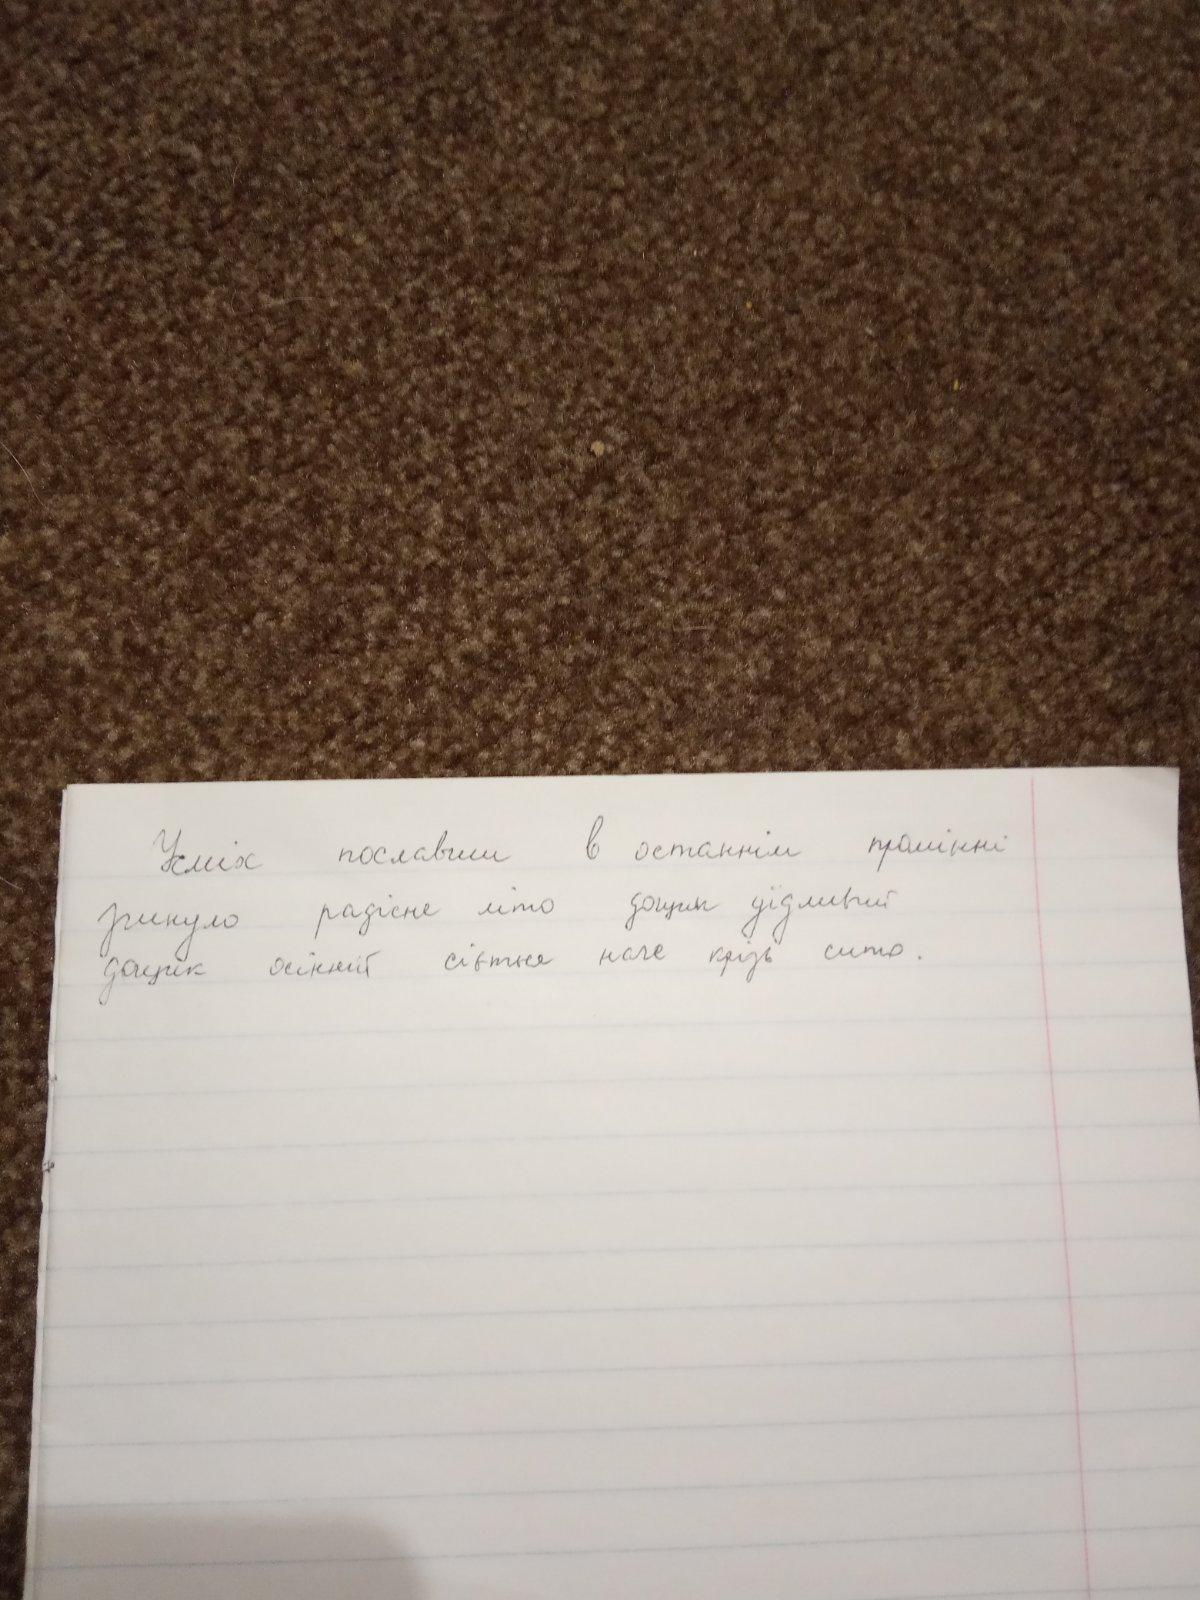 Усміх пославши в останнім промінні
зринуло радісне літо дощик уїдливий
дощик осінній сіється наче крізь сито.